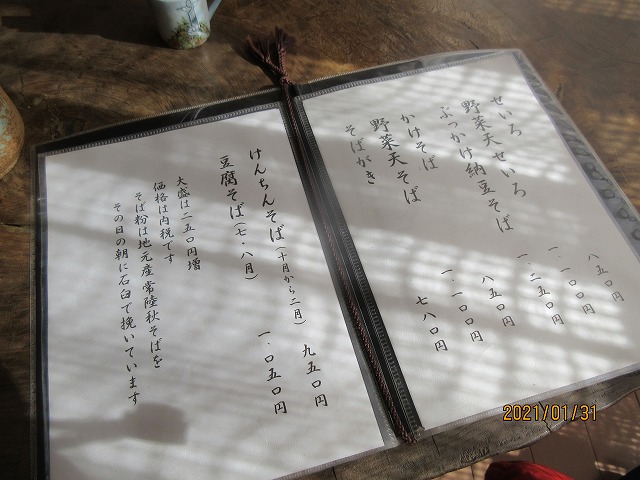 せいろ 八五〇円
野菜天せいろ 一.一〇〇円
ぶっかけ納豆そば 一.二五〇円
かけそば 八五〇円
野菜天そば 一.一〇〇円
そばがき 七八〇円
けんちんそば(十月から二月) 九五〇円
豆腐そば(七・八月) 一.〇五〇円
大盛は二五〇円増
価格は内税です
そば粉は地元産常陸秋そばを
その日の朝に石臼で挽いています
2021/01/31